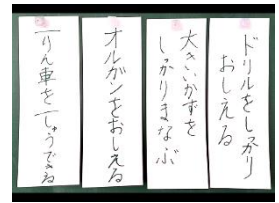 ドリルをしっかり
おしえる
大きいかずを
しっかりまなぶ
オルガンをおしえる
りん車を